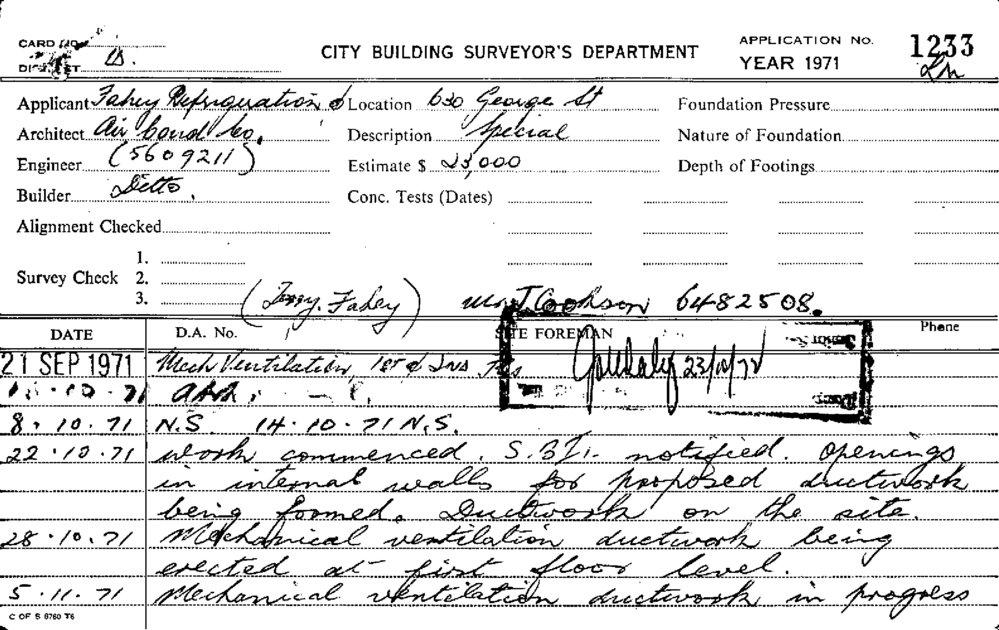 CARD NO.
DISTRICT
CITY BUILDING SURVEYOR'S DEPARTMENT
APPLICATION No. 1233
YEAR 1971
Applicant Fahey Refrigeration & Location 630 George St Foundation Pressure
Architect Air Cond Co. Description Special Nature of Foundation
Engineer (5609211) Estimate $ 23,000 Depth of Footings
Builder Ditto. Conc. Tests (Dates)
Alignment Checked
1.
Survey Check 2.
3. (Fahey) Mr J. 6482508.
DATE D.A. No. SITE FOREMAN Phone
21 SEP 1971 Mech Ventilation 1st & 2nd
10. 71
8. 10. 71 N.S. 14. 10. 71 N.S.
22. 10. 71 work commenced. notified. openings
in internal walls for proposed ductwork
being formed. Ductwork on the site.
28. 10. 71 Mechanical ventilation ductwork being
erected at first floor level.
5. 11. 71 Mechanical ventilation ductwork in progress
C OF S 6760 T6